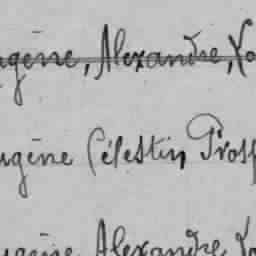 ugène, Alexandre,
ugène Célestin, Prosp
ugène Alexandre